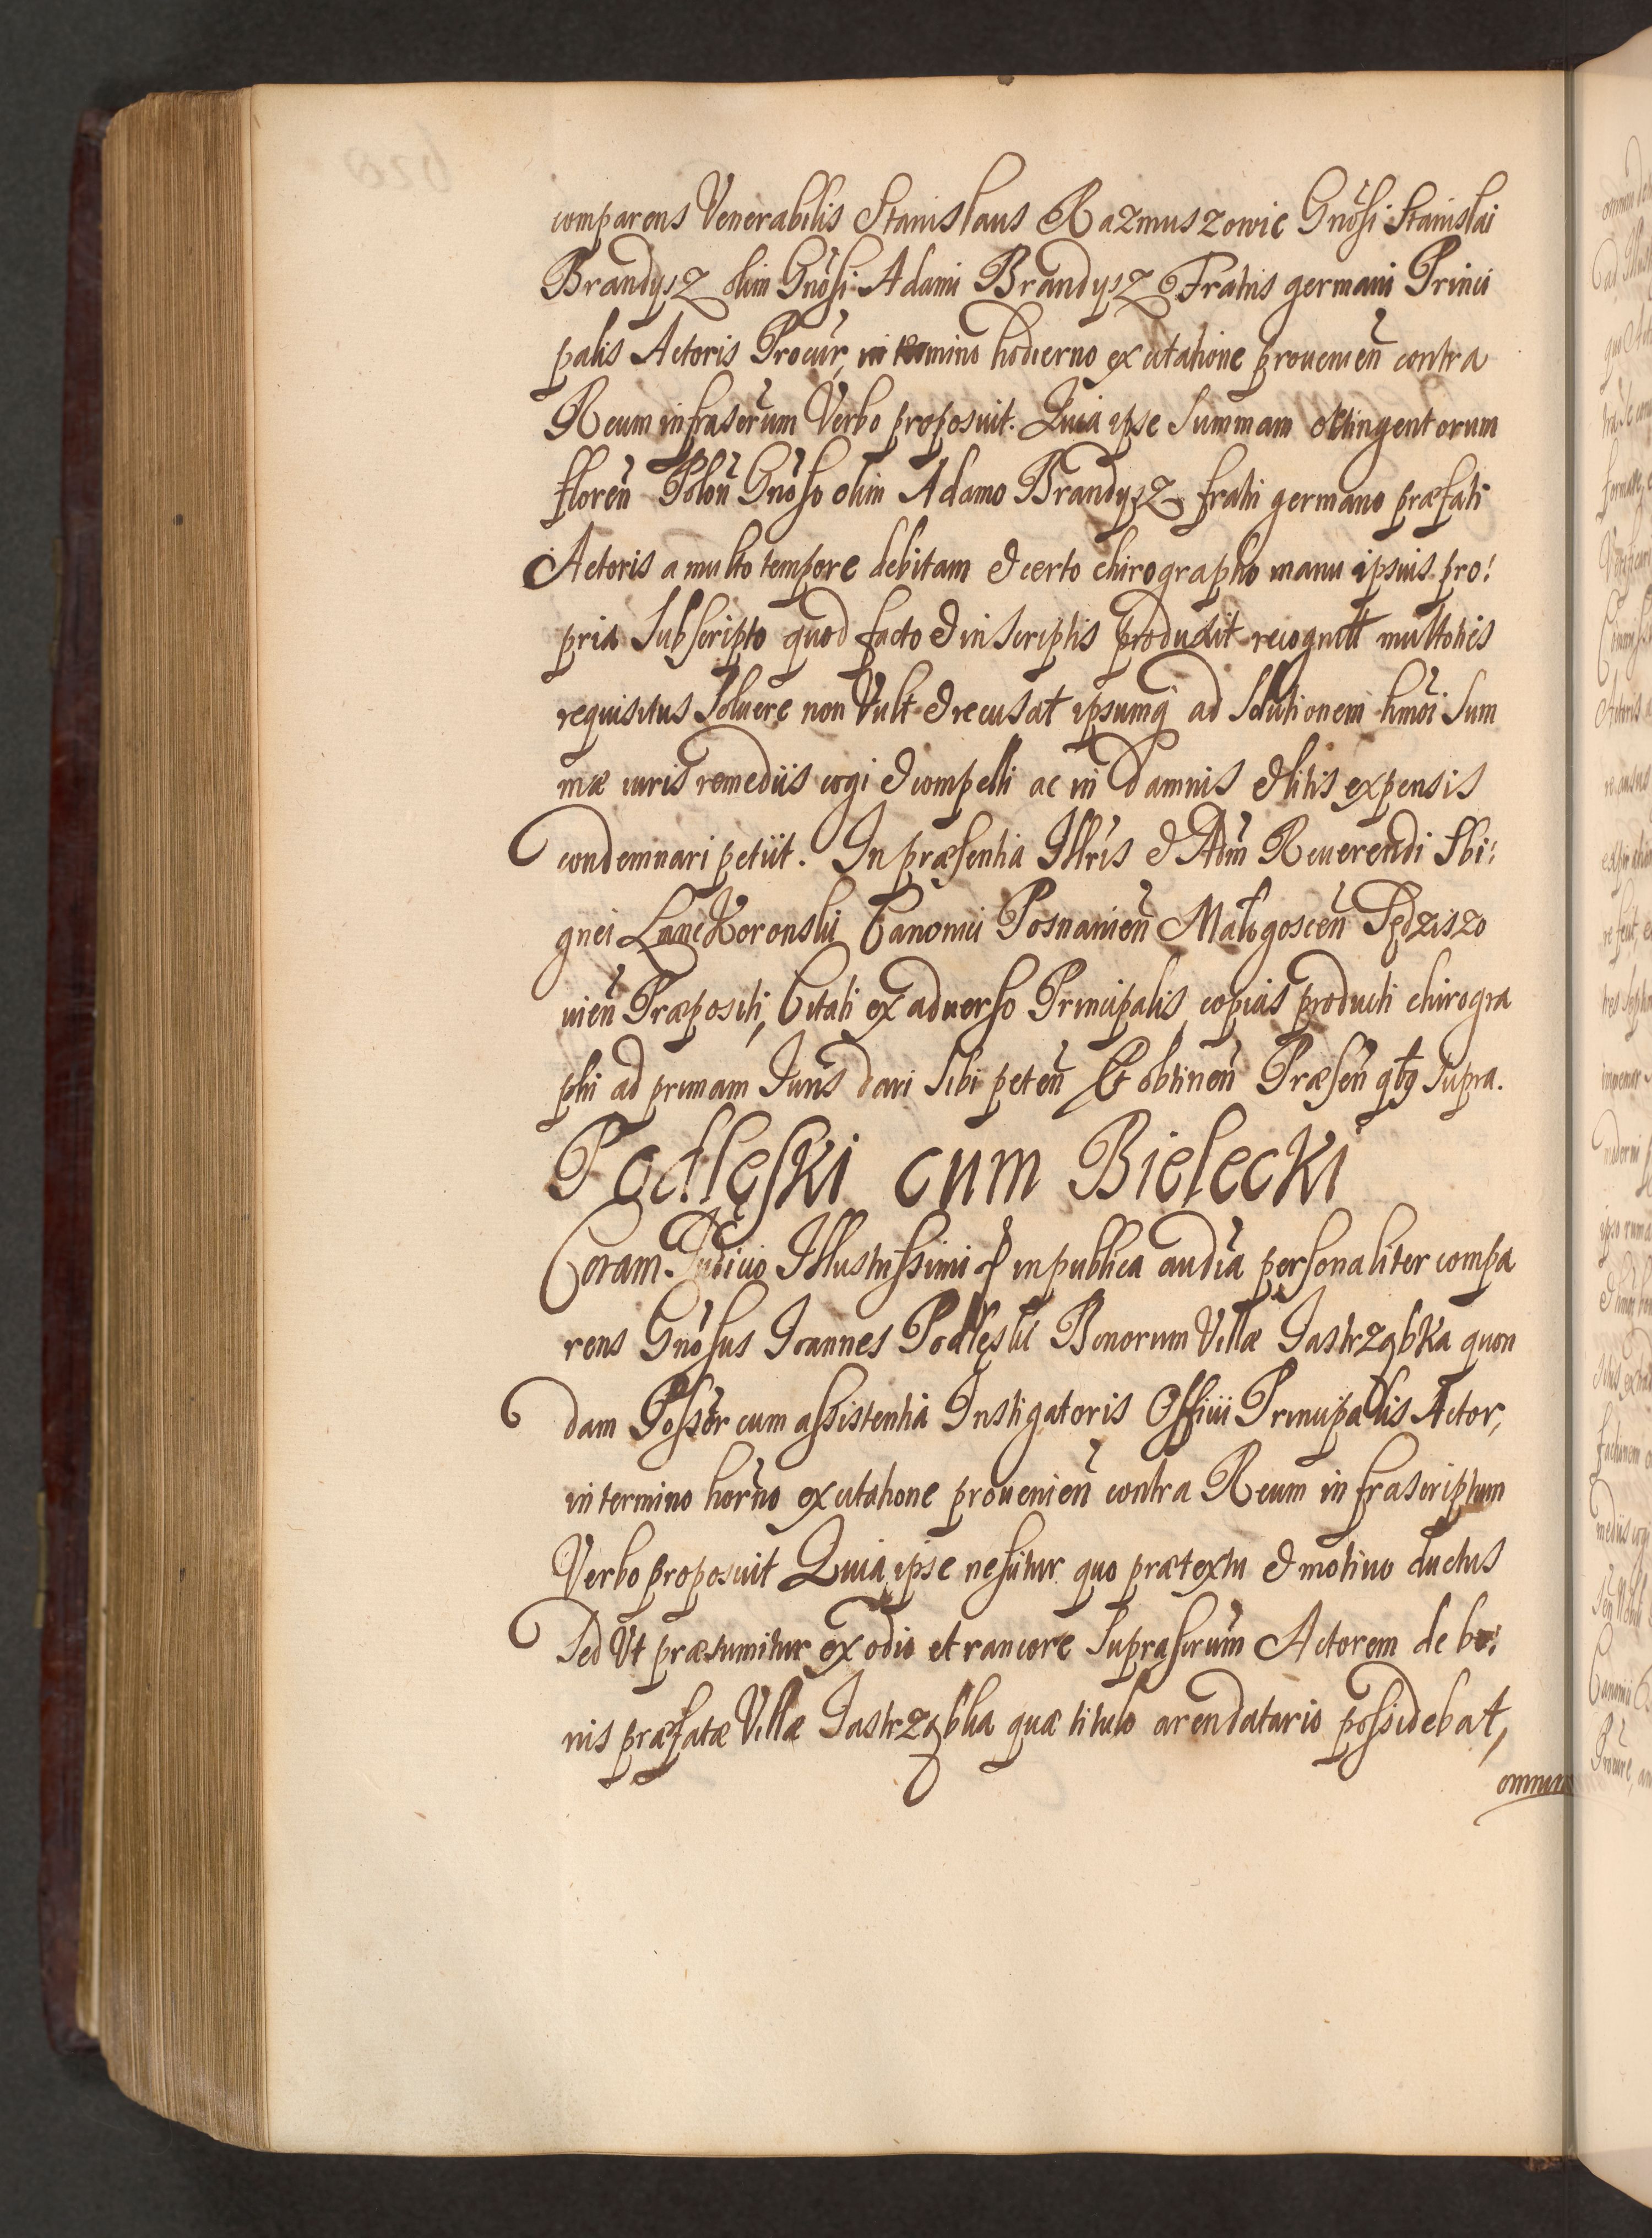 comparens Venerabilis Stanislaus Razmuszowic Gnosi Stanislai
Brandysz olim Gnosi Adami Brandysz Fratris germani Princi
palis Actoris Procur, in termino hodierno ex citatione prouenien contra
Reum infrascrum Verbo proposuit. Quia ipse Summam octingentorum
floren Polon Gnoso olim Adamo Brandysz fratri germano præfati
Actoris a multo tempore debitam & certo chirographo manu ipsius pro:
pria Subscripto quod facto & in Scriptis produxit recognitt multoties
requisitus Soluere non Vult & recusat ipsumq ad Solutionem hmoi Sum
mæ iuris remediis cogi & compelli ac in damnis & litis expensis
condemnari petiit. In præsentia Illris & Adm Reuerendi Sbi:
gnei Lanckoronski Canonici Posnanien Małogoscen Sędziszo
uien Præpositi, Citati ex aduerso Principalis copias producti chirogra
phi ad primam Juris dari Sibi peten Et obtinen Præsen qbg Supra.
Podlęski cum Bielecki
Coram Judicio Illustrissimi & in publica audia personaliter compa
rens Gnosus Joannes Podlęski Bonorum Villæ Jastrząbka quon
dam Possor cum assistentia Instigatoris Officii Principalis Actor,
in termino horno ex citatione prouenien contra Reum infrascriptum
Verbo proposuit Quia ipse nescitur quo prætextu & motiuo ductus
Sed Vt præsumitur ex odio et rancore Suprascrum Actorem de bo:
nis præfatæ Villæ Jastrząbka quæ titulo arendatario possidebat,